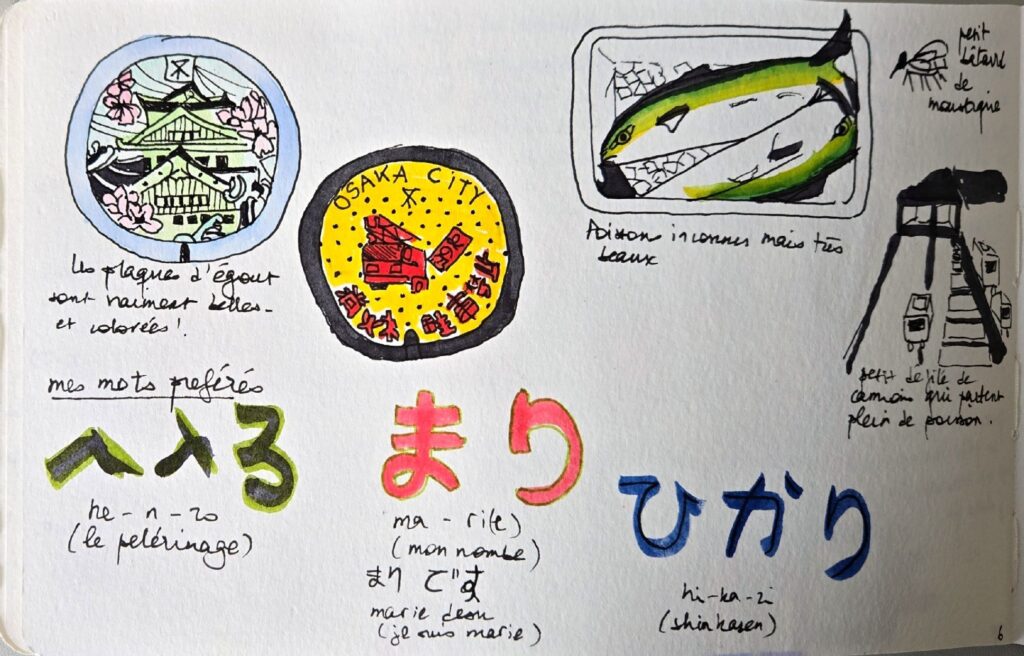 les plaques d'égout
sont vraiment belles -
et colorées !
OSAKA CITY
Poissons inconnus mais très
beaux
petit
bâtard
de
moustique
petit défilé de
camions qui partent
plein de poisson.
mes mots preférés
へんろ
he - n - ro
(le pelérinage)
まり
ma - ri(e)
(mon nombe)
まり です
marie desu
(je suis marie)
ひかり
hi-ka-ri
(shinkasen)
6